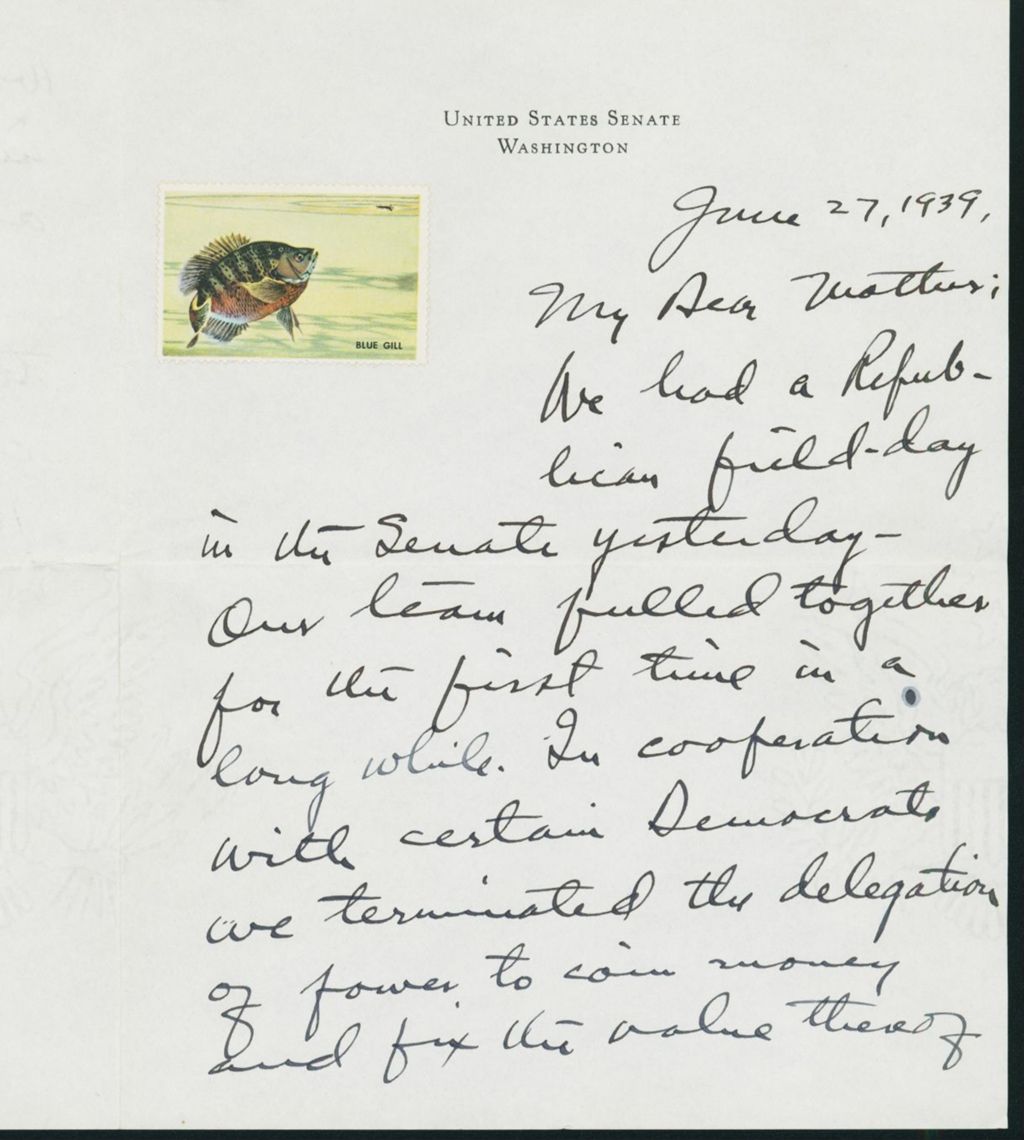 UNITED STATES SENATE
WASHINGTON
June 27, 1939.
BLUE GILL
My Dear Mother:
We had a Repub-
lican field-day
in the Senate yesterday-
Our team pulled together
for the first time in a
long while. In cooperation
with certain Democrats
we terminated the delegation
of power to coin money
and fix the value thereof